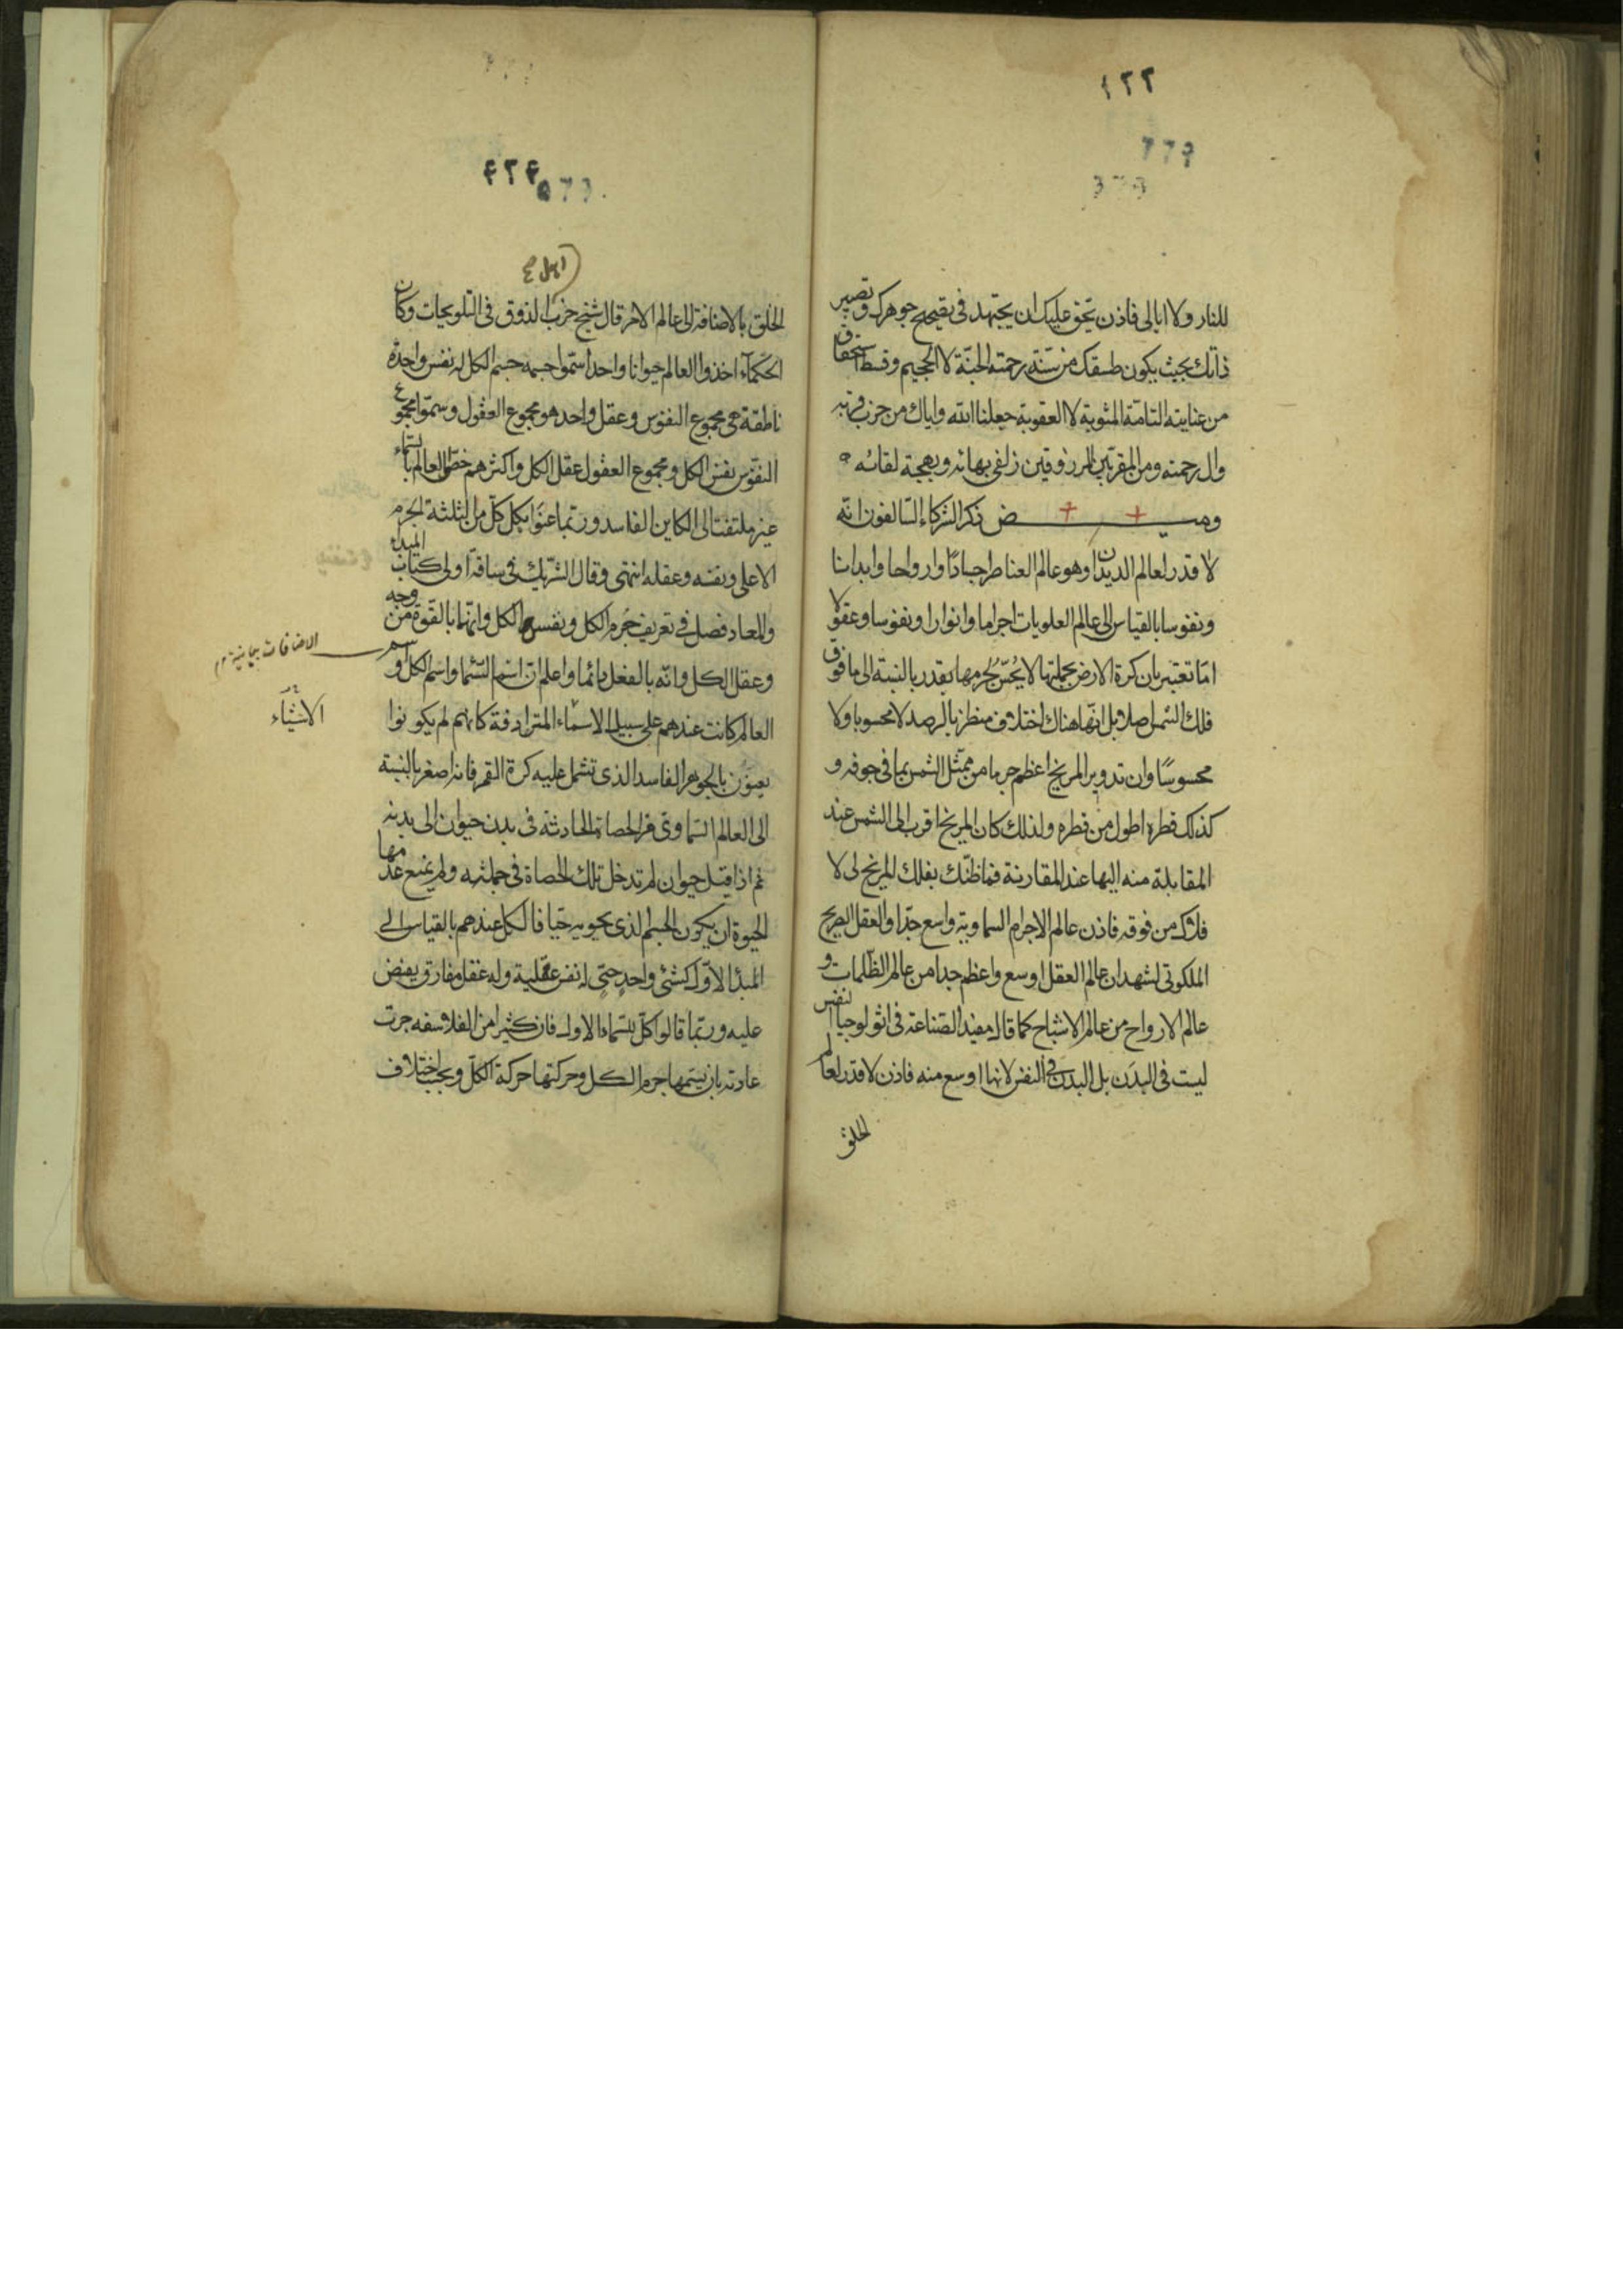 ١٢٢
للنار ولا ابالى فاذن يحق عليك ان يجتهد فى تصحيح جوهرك وتصيير
ذاتك بحيث يكون طسقك من سنة رحمته الجنة لا الجحيم وقسط استحقاق
من عنايته التامة المثوبة لا العقوبة جعلنا الله واياك من حزب قربه
وال رحمته ومن المقربين المرزوقين زلفى بهائه وبهجة لقائه
وميـــــض ذكر الشركاء السالفون انه
لا قدر لعالم الديدان وهو عالم العناصر اجسادا وارواحا وابدانا
ونفوسا بالقياس الى عالم العلويات اجراما وانوارا ونفوسا وعقولا
اما تعتبر بان كرة الارض بجملتها لا يحس لجرمها بقدر بالنسبة الى ما فوق
فلك الشمس اصلا بل انها هناك اختلاف منظر بالرصد لا محسوبا ولا
محسوسا وان تدوير المريخ اعظم جرما من ممثل الشمس بما فى جوفه و
كذلك قطره اطول من قطره ولذلك كان المريخ اقرب الى الشمس عند
المقابلة منه اليها عند المقارنة فما ظنك بفلك المريخ الى لا
فلاك من فوقه فاذن عالم الاجرام السماوية واسع جدا والعقل الصريح
الملكوتى لشهد ان عالم العقل اوسع واعظم جدا من عالم الظلمات و
عالم الارواح من عالم الاشباح كما قال مفيد الصناعة فى اثولوجيا النفس
ليست فى البدن بل البدن فى النفس لانها اوسع منه فاذن لا قدر لعالم
الخلق
٤٢٤
اهل
الخلق بالاضافة الى عالم الامر قال شيخ حزب الذوق فى التلويحات وكان
الحكماء اخذوا العالم حيوانا واحدا سموا جسمه جسم الكل له نفس واحدة
ناطقة هى مجموع النفوس وعقل واحد هو مجموع العقول وسموا مجموع
النفوس نفس الكل ومجموع العقول عقل الكل واكثرهم خص العالم بالسماء
غير ملتفت الى الكاين الفاسد وربما عنوا بكل كل من الثلثة الجرم
الاعلى ونفسه وعقله انتهى وقال الشريك فى ساقة اولى كتاب المبدء
والمعاد فصل فى تعريف جرم الكل ونفس الكل وانها بالقوة من وجه
وعقل الكل وانه بالفعل دائما واعلم ان اسم السماء واسم الكل واسم
العالم كانت عندهم على سبيل الاسماء المترادفة كانهم لم يكونوا
يعبون بالجوهر الفاسد الذى تشتمل عليه كرة القمر فانه اصغر بالنسبة
الى العالم السماوى من الحصاة الحادثة فى بدن حيوان الى بدنه
ثم اذا قيل حيوان لم تدخل تلك الحصاة فى جملته ولم يمنع عدمها
الحيوة ان يكون الجسم الذى يحويه حيا فالكل عندهم بالقياس الى
المبدأ الاول كشئ واحد حى له نفس عقلية وله عقل مفارق يفيض
عليه وربما قالوا كل للسماء الاولى فان كثيرا من الفلاسفة جرت
عادته بان يسمها جرم الكل وحركتها حركة الكل وبحسب اختلاف
الاشياء